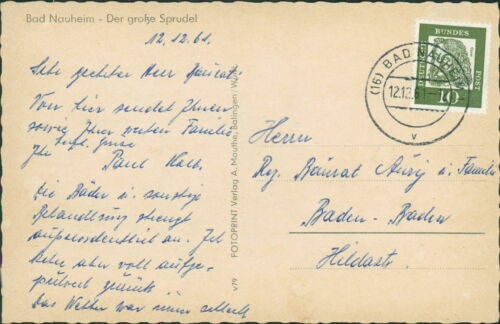 Bad Nauheim - Der große Sprudel
12.12.61.
Sehr geehrter Herr Baurat!
Von hier sendet Ihnen
sowie Ihrer werten Familie
herzl. Grüsse
Ihr
Paul Kalb.
Die Bäder u. sonstige
Behandlung strengt
ausserordentlich an. Ich
kehre aber voll aufge-
pulvert zurück.
Das Wetter war immer schlecht
FOTOPRINT Verlag A. Mauthe, Balingen / Württ.
v79
DEUTSCHE
BUNDES
POST
10
(16) BAD NAUHEIM
12.12.61
v
Herrn
Reg. Baurat Aurig u. Familie
Baden-Baden
Hildastr.